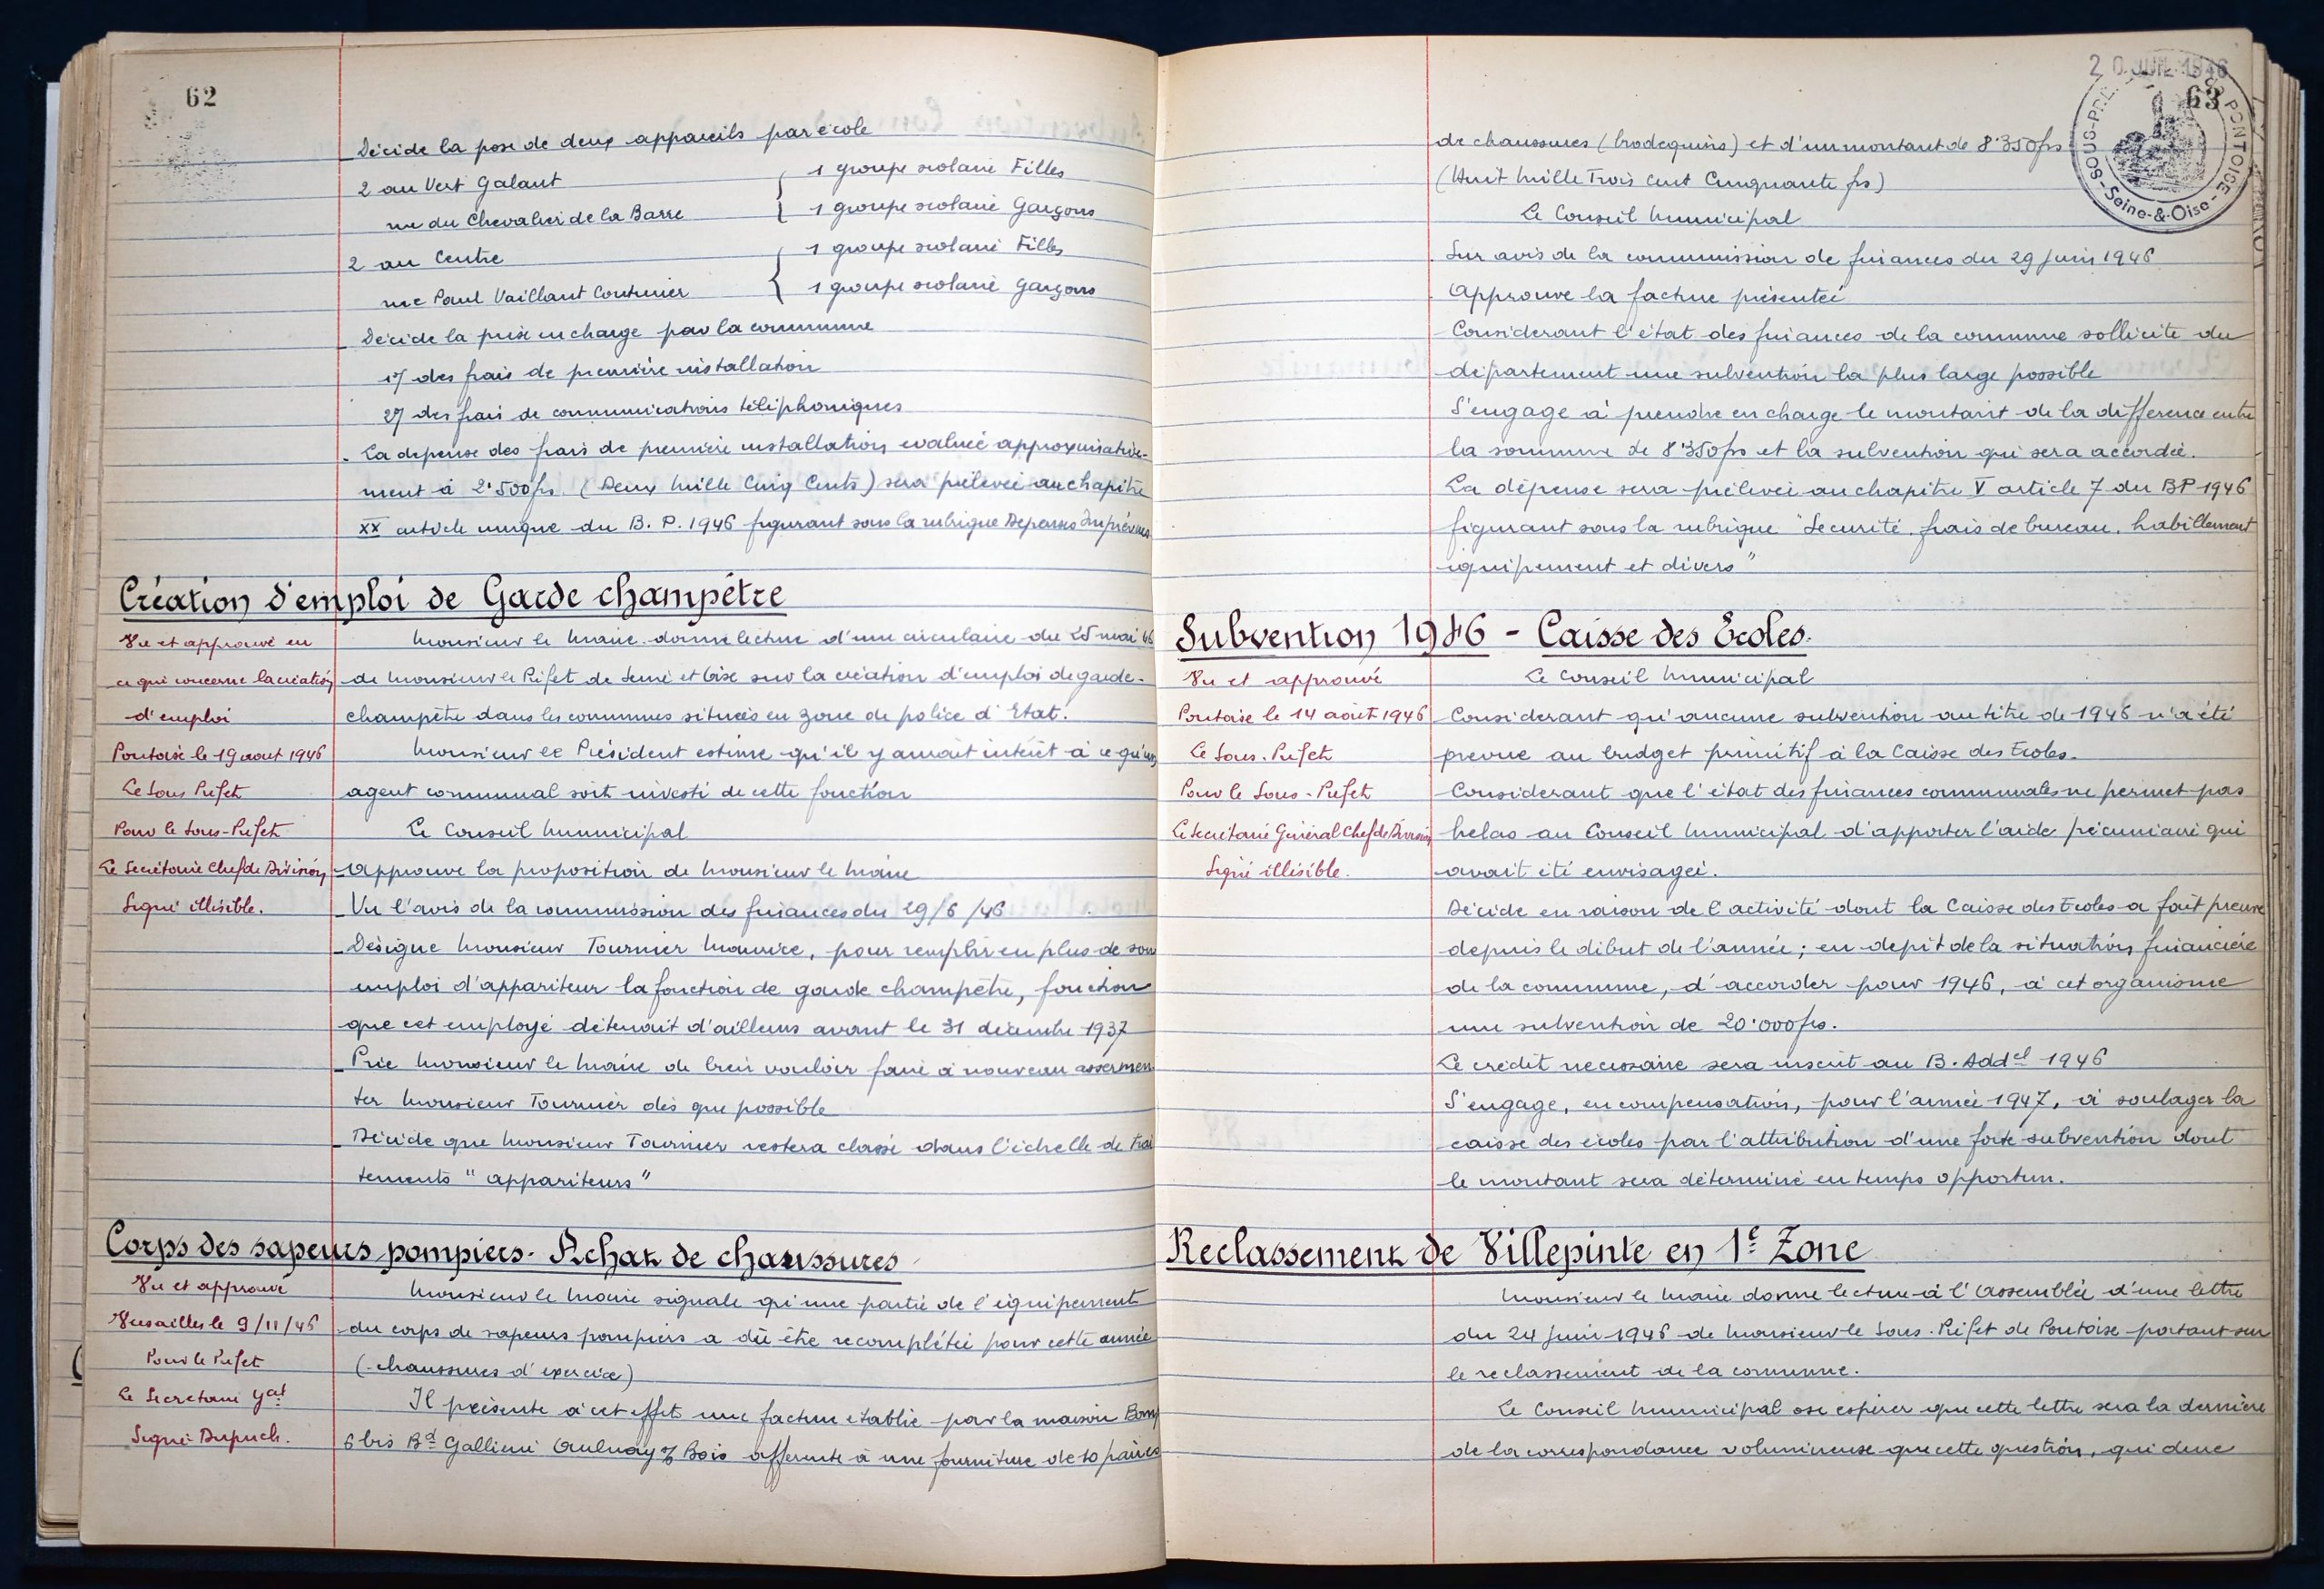 62
Décide la pose de deux appareils par école
2 au Vert Galant { 1 groupe scolaire Filles
rue du Chevalier de la Barre { 1 groupe scolaire Garçons
2 au Centre { 1 groupe scolaire Filles
rue Paul Vaillant Couturier { 1 groupe scolaire Garçons
Décide la prise en charge par la commune
1°/ des frais de première installation
2°/ des frais de communications téléphoniques
La dépense des frais de première installation evaluée approximative-
ment à 2.500frs. (Deux Mille Cinq Cents) sera prélevée au chapitre
XX article unique du B. P. 1946 figurant sous la rubrique Dépenses Imprévues
Création d'emploi de Garde champêtre
Vu et approuvé en
ce qui concerne la création
d'emploi
Pontoise le 19 aout 1946
Le Sous Prefet
Pour le Sous-Préfet
Le Secrétaire Chef de Division
Signé illisible.
Monsieur le Maire donne lecture d'une circulaire du 25 mai 46
de Monsieur le Préfet de Seine et Oise sur la création d'emploi de garde-
champêtre dans les communes situées en zone de police d'Etat.
Monsieur le Président estime qu'il y aurait intérêt à ce qu'un
agent communal soit investi de cette fonction
Le Conseil Municipal
Approuve la proposition de Monsieur le Maire
Vu l'avis de la commission des finances du 29/6/46
Désigne Monsieur Tournier Maurice, pour remplir en plus de son
emploi d'appariteur la fonction de garde champêtre, fonction
que cet employé détenait d'ailleurs avant le 31 décembre 1937
Prie Monsieur le Maire de bien vouloir faire à nouveau assermen
ter Monsieur Tournier dès que possible
Décide que Monsieur Tournier restera classé dans l'échelle de trai
tements "appariteurs"
Corps des sapeurs pompiers. Achat de chaussures
Vu et approuvé
Versailles le 9/11/46
Pour le Préfet
Le Secretaire Gal
Signé Dupuch.
Monsieur le Maire signale qu'une partie de l'équipement
du corps de sapeurs pompiers a dû être recomplétée pour cette année
(chaussures d'exercice)
Il présente à cet effet une facture etablie par la maison
6 bis Bd Gallieni Aulnay s/ Bois afférente à une fourniture de 10 paires
20 JUIL 1946
63
SOUS-PRÉFECTURE DE PONTOISE
Seine-&-Oise
de chaussures (brodequins) et d'un montant de 8.350frs
(Huit Mille Trois Cent Cinquante frs)
Le Conseil Municipal
Sur avis de la commission de finances du 29 Juin 1946
Approuve la facture présentée
Considerant l'état des finances de la commune sollicite du
département une subvention la plus large possible
S'engage à prendre en charge le montant de la différence entre
la somme de 8.350frs et la subvention qui sera accordée.
La dépense sera prélevée au chapitre V article 7 du BP 1946
figurant sous la rubrique "Securité, frais de bureau, habillement
équipement et divers"
Subvention 1946 - Caisse des Ecoles.
Vu et approuvé
Pontoise le 14 août 1946
Le Sous-Préfet
Pour le Sous-Préfet
Le Secrétaire Général Chef de Division
Signé illisible.
Le Conseil Municipal
Considerant qu'aucune subvention au titre de 1946 n'a été
prevue au budget primitif à la Caisse des Ecoles.
Considerant que l'état des finances communales ne permet pas
helas au Conseil Municipal d'apporter l'aide pécuniaire qui
avait été envisagée.
Décide en raison de l'activité dont la Caisse des Ecoles a fait preuve
depuis le début de l'année; en depit de la situation financière
de la commune, d'accorder pour 1946, à cet organisme
une subvention de 20.000frs.
Le crédit necessaire sera inscrit au B. Addel 1946
S'engage, en compensation, pour l'année 1947, à soulager la
caisse des écoles par l'attribution d'une forte subvention dont
le montant sera déterminé en temps opportun.
Reclassement de Villepinte en 1e Zone
Monsieur le Maire donne lecture à l'Assemblée d'une lettre
du 24 Juin 1946 de Monsieur le Sous-Préfet de Pontoise portant sur
le reclassement de la commune.
Le Conseil Municipal ose espérer que cette lettre sera la dernière
de la correspondance volumineuse que cette question, qui dure